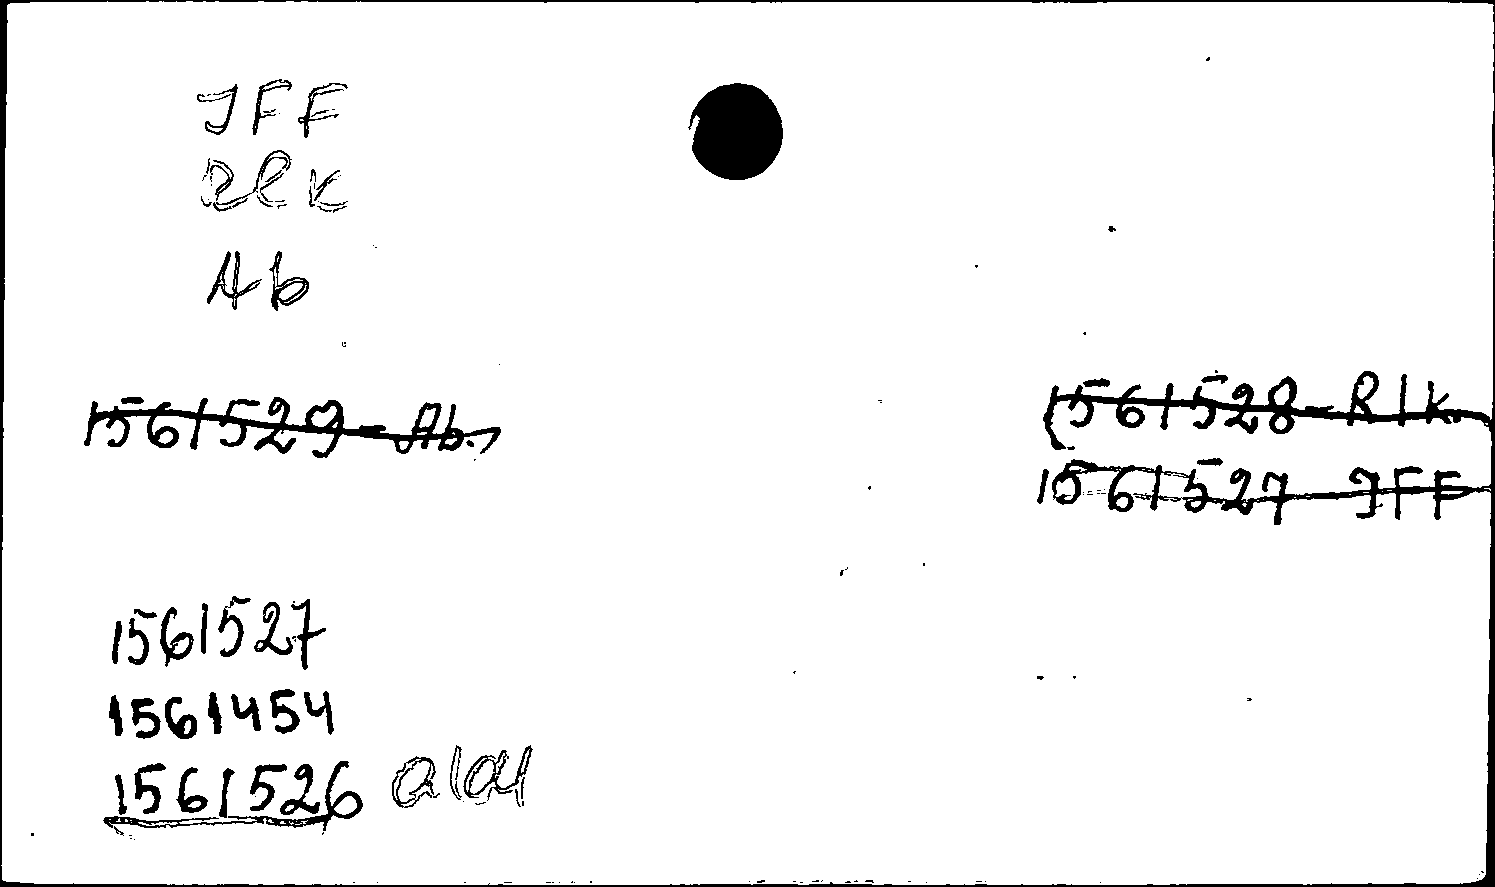 JFF
Rlk
Ab
1561529 - Ab.
1561528 - Rlk.
1561527 JFF
1561527
1561454
1561526